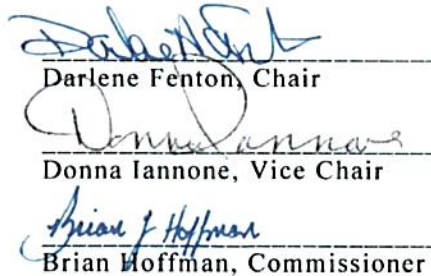 Darlene Fenton
Darlene Fenton, Chair
Donna Iannone
Donna Iannone, Vice Chair
Brian J Hoffman
Brian Hoffman, Commissioner